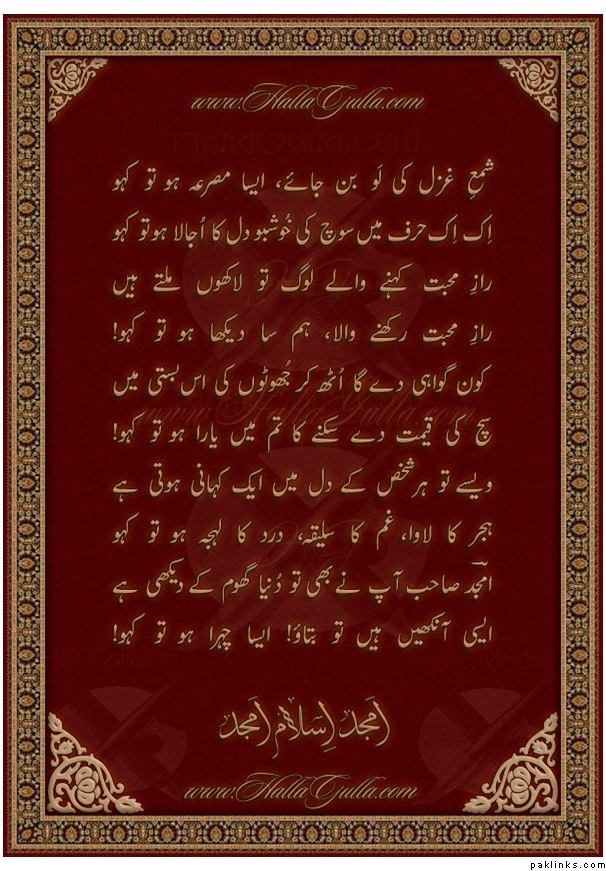 www.HallaGulla.com
شمعِ غزل کی لَو بن جائے، ایسا مصرعہ ہو تو کہو
اِک اِک حرف میں سوچ کی خُوشبو دل کا اُجالا ہو تو کہو
رازِ محبت کہنے والے لوگ تو لاکھوں ملتے ہیں
رازِ محبت رکھنے والا، ہم سا دیکھا ہو تو کہو!
کون گواہی دے گا اُٹھ کر جُھوٹوں کی اس بستی میں
سچ کی قیمت دے سکنے کا تم میں یارا ہو تو کہو!
ویسے تو ہر شخص کے دل میں ایک کہانی ہوتی ہے
ہجر کا لاوا، غم کا سلیقہ، درد کا لہجہ ہو تو کہو
امجدؔ صاحب آپ نے بھی تو دُنیا گھوم کے دیکھی ہے
ایسی آنکھیں ہیں تو بتاؤ! ایسا چہرا ہو تو کہو!
امجد اسلام امجد
www.HallaGulla.com
paklinks.com